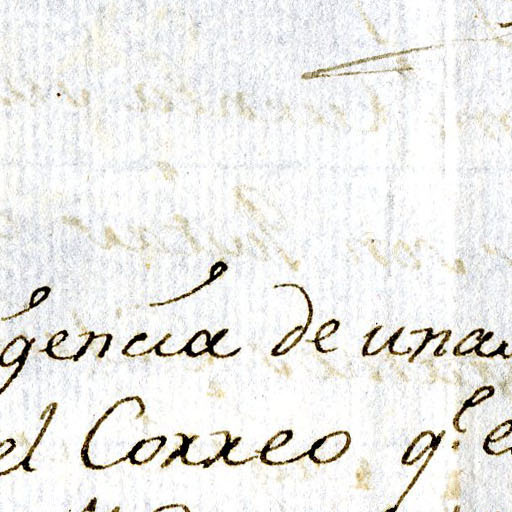 gencia de una
el Correo q.e e